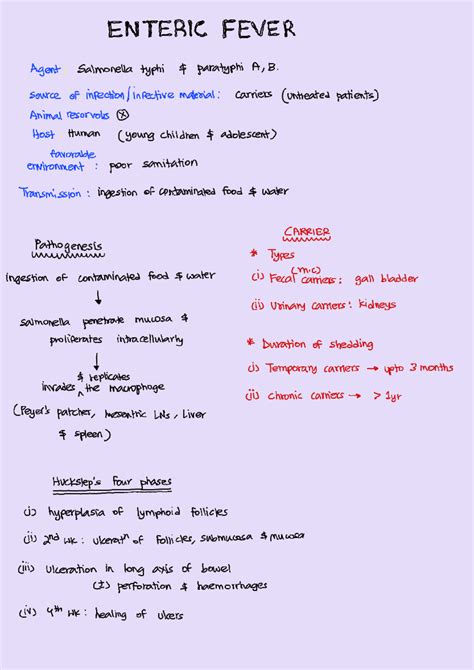 ENTERIC FEVER
Agent Salmonella typhi & paratyphi A, B.
source of infection/infective material: carriers (untreated patients)
Animal reservoirs ⊗
Host Human (young children & adolescent)
favorable
environment: poor sanitation
Transmission: ingestion of contaminated food & water
Pathogenesis
Ingestion of contaminated food & water
↓
salmonella penetrate mucosa &
proliferates intracellularly
↓
& replicates
invades ^ the macrophage
(Peyer's patches, mesentric LNs, Liver
& spleen)
CARRIER
* Types
(m.c)
(i) Fecal carriers: gall bladder
(ii) Urinary carriers: kidneys
* Duration of shedding
(i) Temporary carriers → upto 3 months
(ii) chronic carriers → > 1yr
Huckstep's four phases
(i) hyperplasia of lymphoid follicles
(ii) 2nd wk: ulceratn of follicles, submucosa & mucosa
(iii) ulceration in long axis of bowel
(±) perforation & haemorrhages
(iv) 4th wk: healing of ulcers